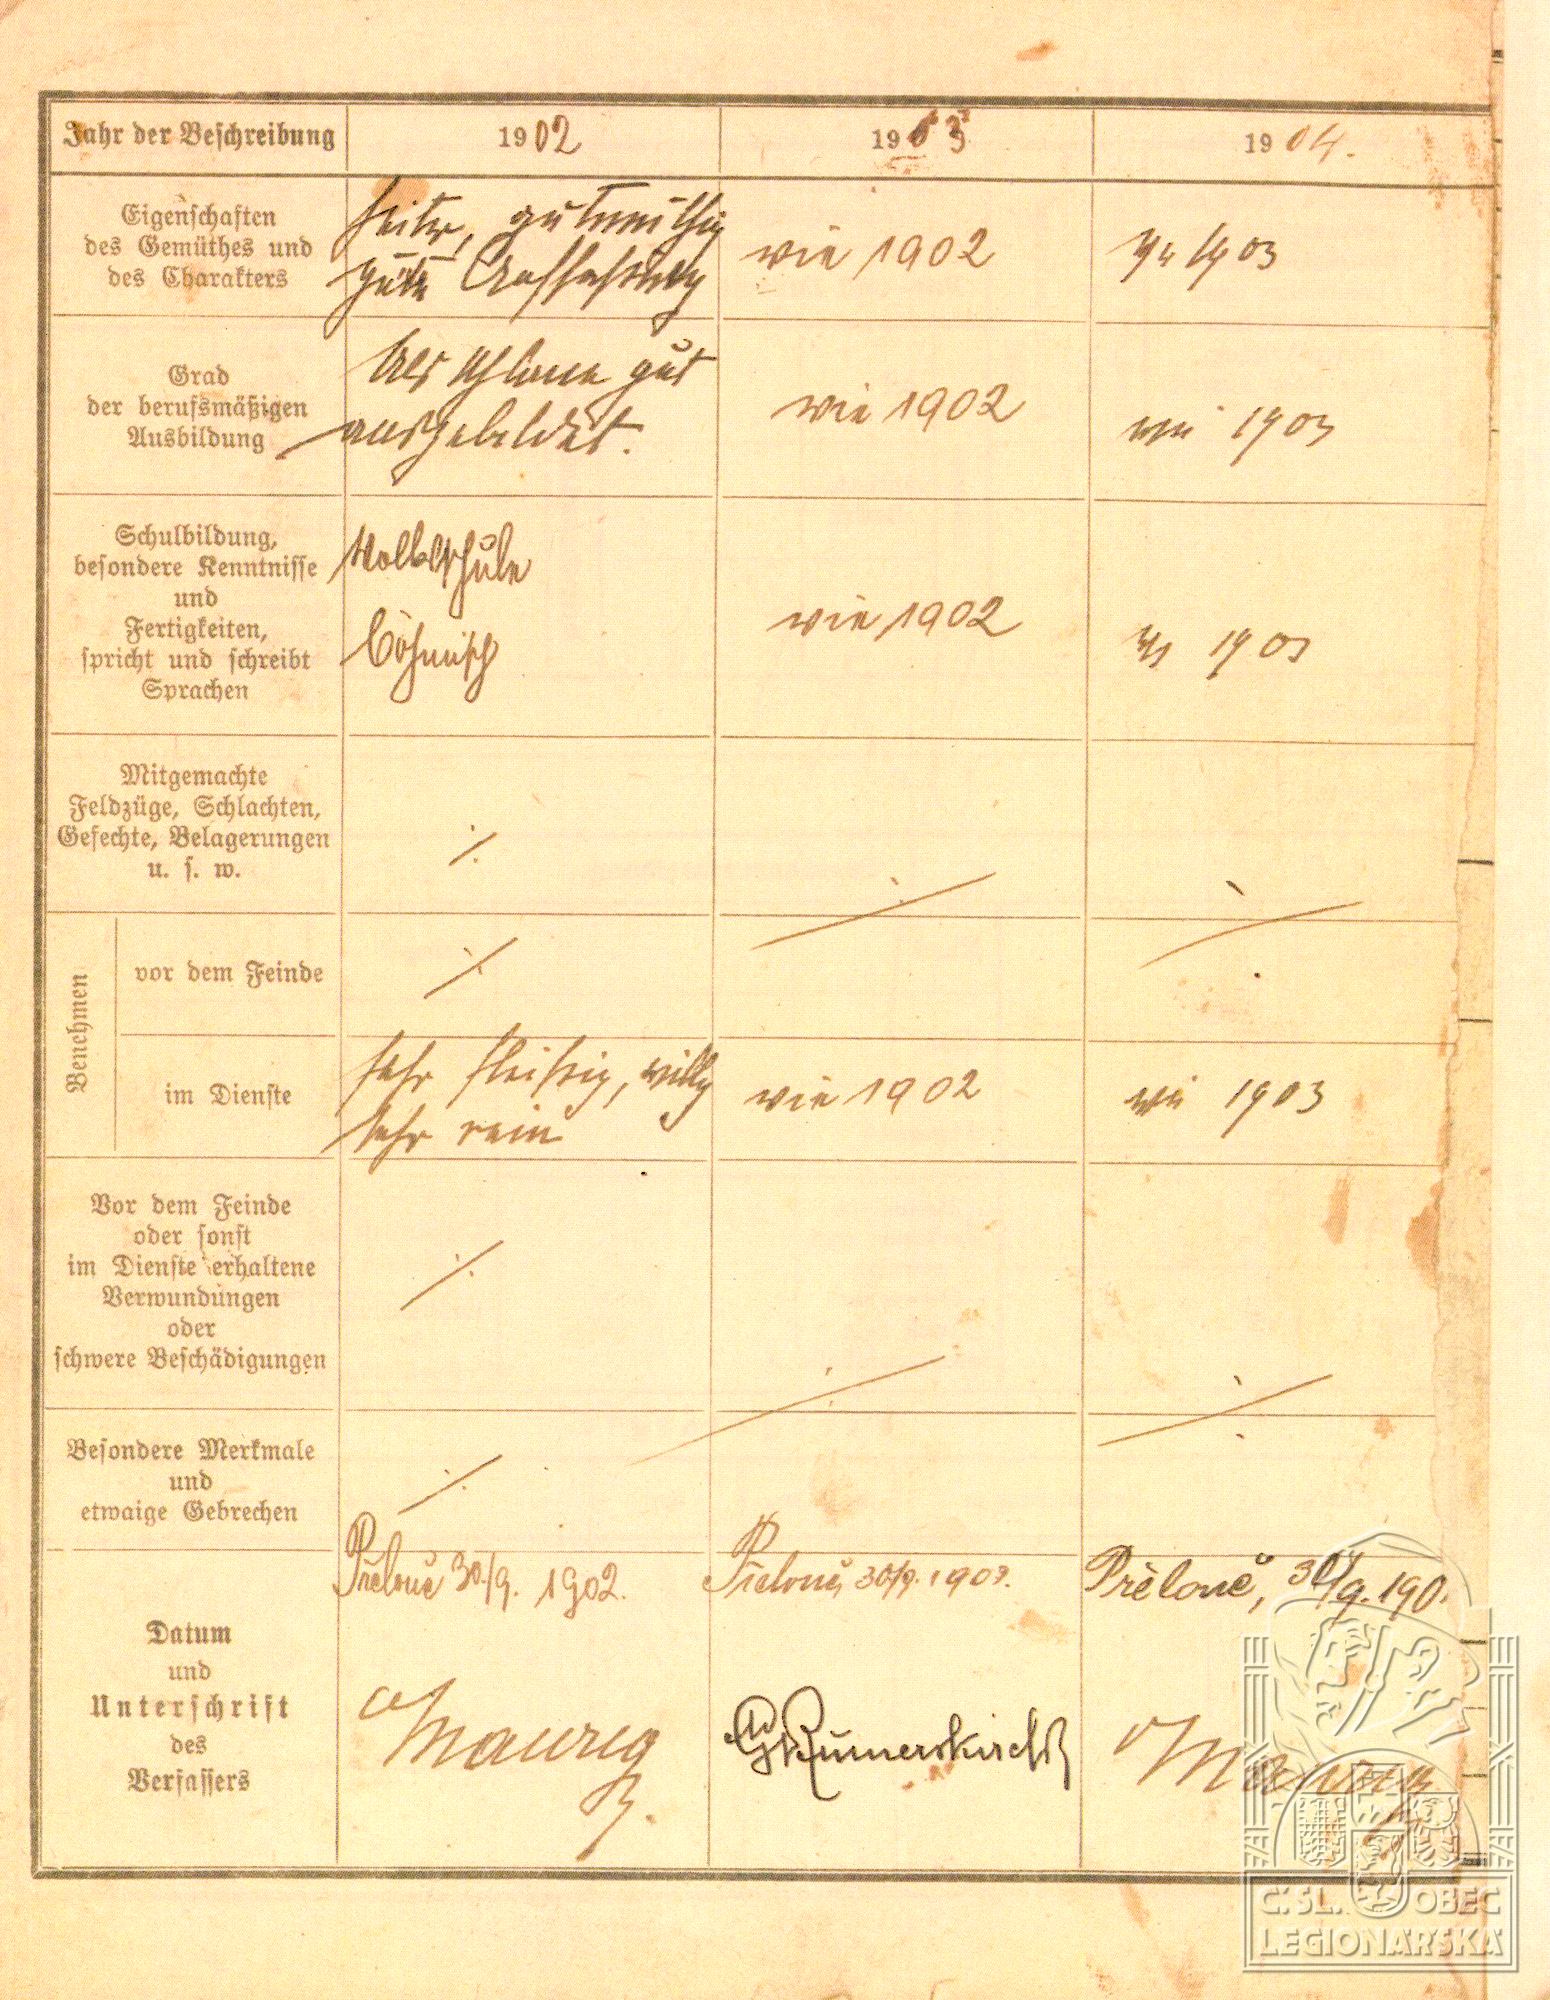 Jahr der Beschreibung 1902 1903 1904.
Eigenschaften
des Gemüthes und
des Charakters
heiter, gutmüthig
gute Auffassung
wie 1902
wie 1903
Grad
der berufsmäßigen
Ausbildung
Als Uhlane gut
ausgebildet.
wie 1902
wie 1903
Schulbildung,
besondere Kenntnisse
und
Fertigkeiten,
spricht und schreibt
Sprachen
Volksschule
böhmisch
wie 1902
1903
Mitgemachte
Feldzüge, Schlachten,
Gefechte, Belagerungen
u. s. w.
Benehmen
vor dem Feinde
im Dienste
sehr fleißig, willig
sehr rein
wie 1902
wie 1903
Vor dem Feinde
oder sonst
im Dienste erhaltene
Verwundungen
oder
schwere Beschädigungen
Besondere Merkmale
und
etwaige Gebrechen
Datum
und
Unterschrift
des
Verfassers
Přelouč 30./9. 1902.
Přelouč, 30/9. 1903.
Přelouč, 30/9. 190
Rumerskirch
Č. SL. OBEC
LEGIONÁŘSKÁ